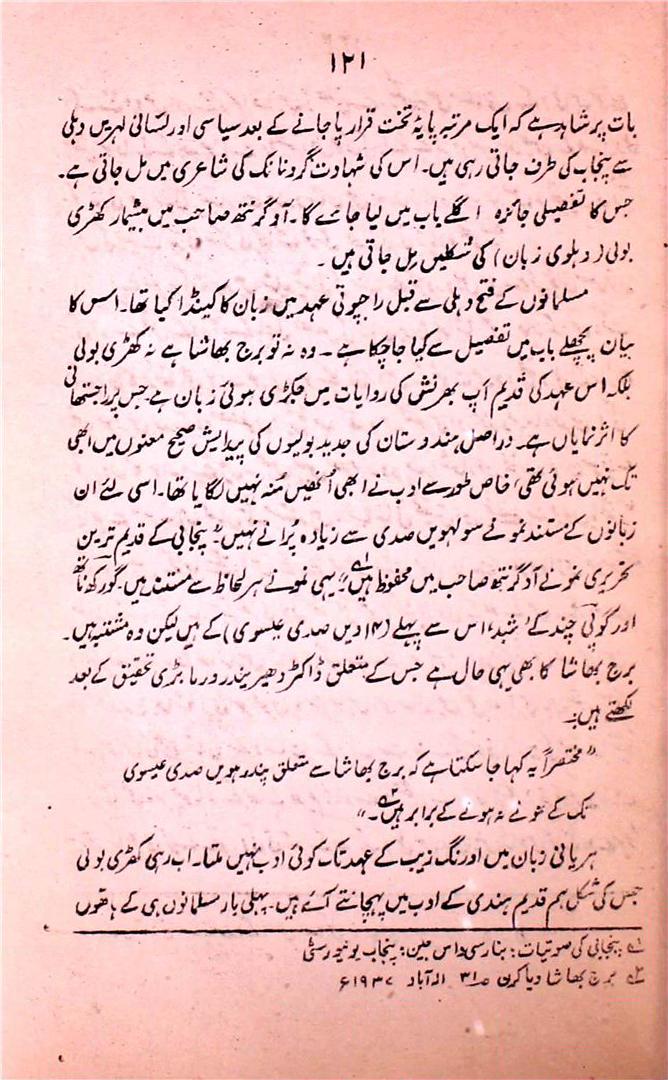 ۱۲۱
بات پر شاہد ہے کہ ایک مرتبہ پایۂ تخت قرار پا جانے کے بعد سیاسی اور لسانی لہریں دہلی
سے پنجاب کی طرف جاتی رہی ہیں۔ اس کی شہادت گرو نانک کی شاعری میں مل جاتی ہے۔
جس کا تفصیلی جائزہ اگلے باب میں لیا جائے گا۔ آد گرنتھ صاحب میں بیشمار کھڑی
بولی (دہلوی زبان) کی شکلیں مل جاتی ہیں ۔
مسلمانوں کے فتح دہلی سے قبل راجپوتی عہد میں زبان کا کینڈا کیا تھا۔ اس کا
بیان پچھلے باب میں تفصیل سے کیا جا چکا ہے ۔ وہ نہ تو برج بھاشا ہے نہ کھڑی بولی
بلکہ اس عہد کی قدیم اَپ بھرنش کی روایات میں جکڑی ہوئی زبان ہے جس پر راجستھانی
کا اثر نمایاں ہے۔ دراصل ہندوستان کی جدید بولیوں کی پیدایش صحیح معنوں میں ابھی
تک نہیں ہوئی تھی، خاص طور سے ادب نے ابھی اُنھیں مُنہ نہیں لگایا تھا۔ اسی لئے ان
زبانوں کے مستند نمونے سولہویں صدی سے زیادہ پُرانے نہیں۔ "پنجابی کے قدیم ترین
تحریری نمونے آد گرنتھ صاحب میں محفوظ ہیں۱؎" یہی نمونے ہر لحاظ سے مستند ہیں۔ گورکھ ناتھ
اور گوپی چند کے 'شبد' اس سے پہلے (۱۴ ویں صدی عیسوی) کے ہیں لیکن وہ مشتبہ ہیں۔
برج بھاشا کا بھی یہی حال ہے جس کے متعلق ڈاکٹر دھیریندر ورما بڑی تحقیق کے بعد
لکھتے ہیں:۔
"مختصراً یہ کہا جا سکتا ہے کہ برج بھاشا سے متعلق پندرہویں صدی عیسوی
تک کے نمونے نہ ہونے کے برابر ہیں۲؎۔"
ہریانی زبان میں اورنگ زیب کے عہد تک کوئی ادب نہیں ملتا۔ اب رہی کھڑی بولی
جس کی شکل ہم قدیم ہندی کے ادب میں پہچانتے آئے ہیں۔ پہلی بار مسلمانوں ہی کے ہاتھوں
۱؎ پنجابی کی صوتیات: بنارسی داس جین: پنجاب یونیورسٹی
۲؎ برج بھاشا ویاکرن ص۳۱ الہ آباد ۱۹۳۷ء